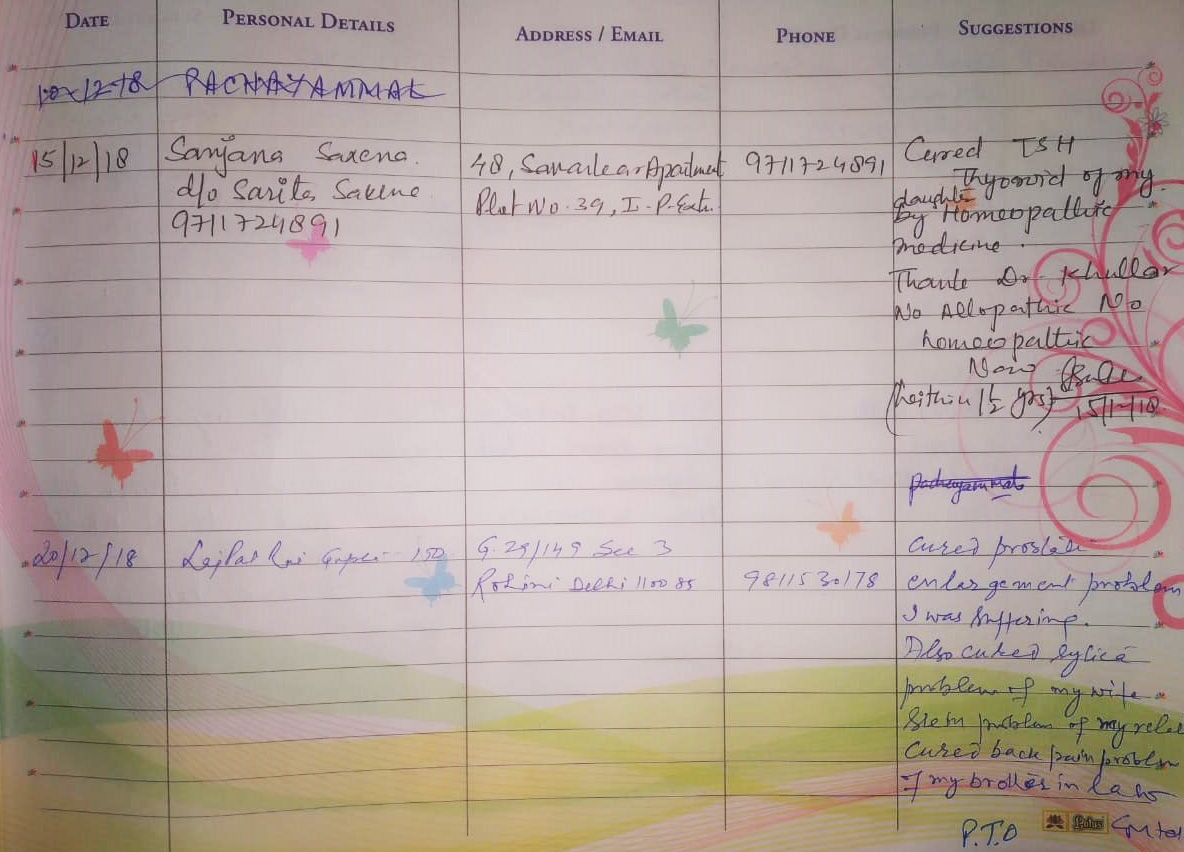 DATE PERSONAL DETAILS ADDRESS / EMAIL PHONE SUGGESTIONS
10-12-18 PACHAYAMMAL
15/12/18 Sanjana Saxena. 48, Apartment 9711724891 Cured TSH
d/o Sarita Saxena Plot No. 39, I.P. Extn. Thyoroid of my
9711724891 daughter
by Homeopathic
medicine.
Thanks Dr Khullar
No Allopathic No
homeopathic
Now
(within 1½ yrs) 15/12/18
Pachayammal
20/12/18 Lajpat Rai Gupta 150 G. 29/149 Sec 3 Cured prostate
Rohini Delhi 110085 9811530178 enlargement problem
I was suffering.
Also cured
problem of my wife.
problem of my
Cured back pain problem
of my brother in law
P.T.O